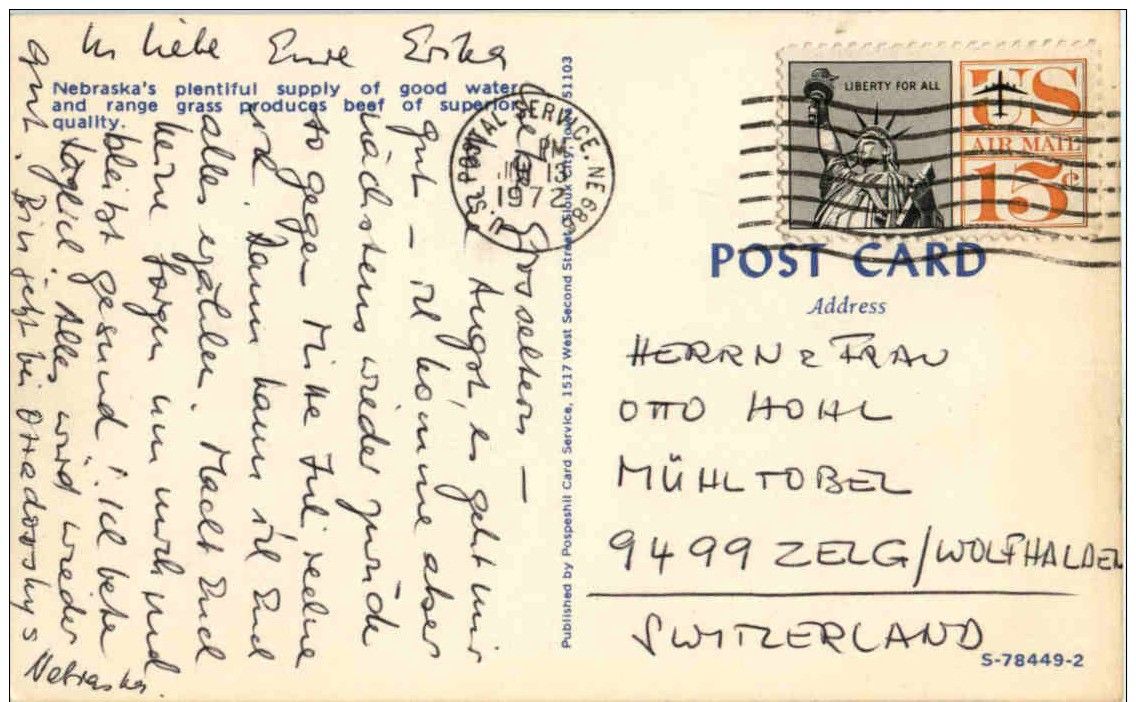 In Liebe Eure Erika
Nebraska's plentiful supply of good water
and range grass produces beef of superior
quality.
Grosseltern —
keine Angst, es geht mir
gut — ich komme aber
nächstens wieder zurück
so gegen Mitte Juli rechne
ich. Dann kann ich Euch
alles erzählen. Macht Euch
keine Sorgen um mich und
bleibt gesund! Ich bete
täglich. Alles wird wieder
gut. Bin jetzt bei
Nebraska.
Published by Pospeshil Card Service, 1517 West Second Street, Sioux City, Iowa 51103
U.S. POSTAL SERVICE. NE 680
PM
13
1972
LIBERTY FOR ALL
US
AIR MAIL
15¢
POST CARD
Address
HERRN & FRAU
OTTO HOHL
MÜHLTOBEL
9499 ZELG/WOLFHALDEN
SWITZERLAND
S-78449-2